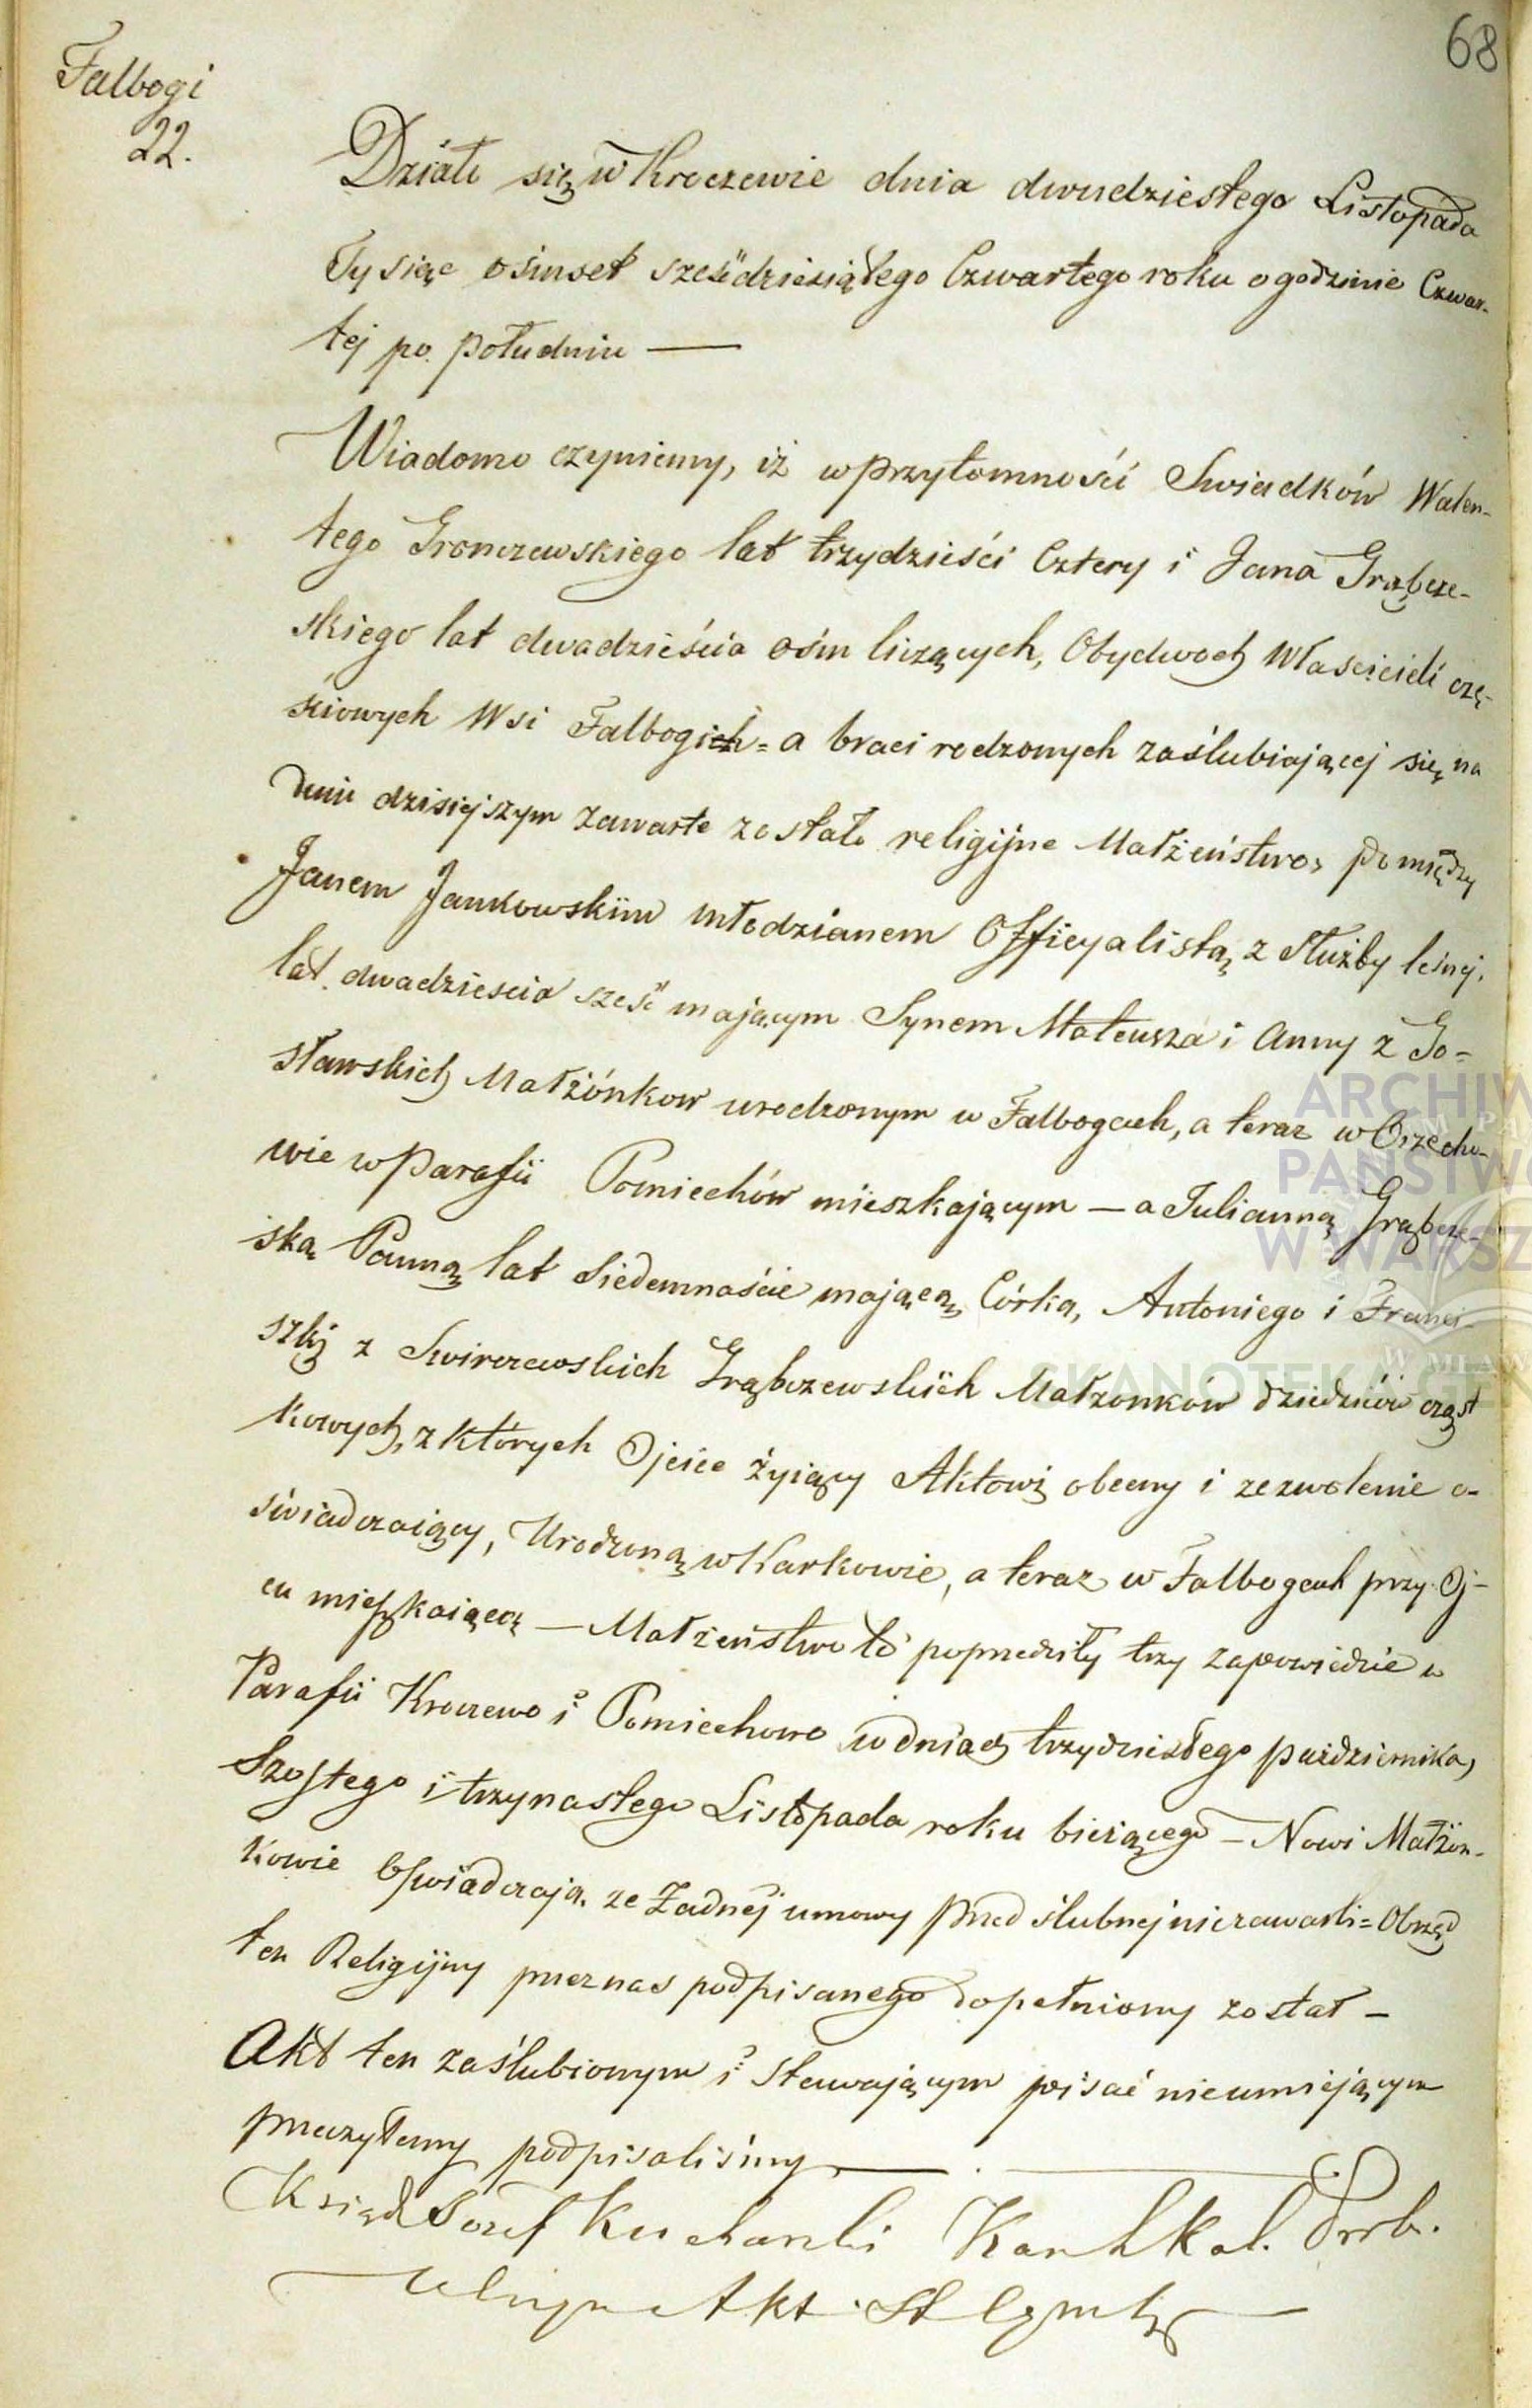 68
Falbogi
22.
Działo się w Kroczewie dnia dwudziestego Listopada
Tysiąc ośmset sześćdziesiątego Czwartego roku o godzinie Czwar-
tej po południu —
Wiadomo czyniemy, iż w przytomności Swiadków Walen-
tego Gronczewskiego lat trzydzieści Cztery i Jana Grąbcze-
skiego lat dwadzieścia ośm liczących, Obydwoch Własścicieli czę-
ściowych Wsi Falbogich = a braci rodzonych zaślubiającej się na
dniu dzisiejszym zawarte zostało religijne Małżeństwo, pomiędzy
Janem Jankowskim młodzianem Officyalistą z służby leśnej,
lat dwadziescia sześć mającym Synem Mateusza i Anny z Go=
sławskich Małżónkow urodzonym w Falbogach, a teraz w Orzecho-
wie w Parafii Pomiechów mieszkającym — a Julianną Grąbcze-
ską Panną lat Siedemnaście mającą, Córką, Antoniego i Franci-
szki z Swirczewskich Grąbczewskich Małzonków dziedziców cząst
kowych, z których Ojciec żyiący Aktowi obecny i zezwolenie o-
świadczaiący, Urodzoną w Karkowie, a teraz w Falbogach przy Oj-
cu mieszkaiącą — Małżeństwo to poprzedziły trzy zapowiedzie w
Parafii Kroczewo i Pomiechowo w dniach trzydziestego października,
Szostego i trzynastego Listopada roku bieżącego — Nowi Małżon-
kowie Oswiadczają, ze Żadnej umowy przed ślubnej niezawarli = Obrzęd
ten Religijny przez nas podpisanego dopełniony został —
Akt ten zaślubionym i Stawającym pisać nieumiejącym
przeczytany podpisaliśmy —
Ksiądz Józef Kucharski Kan. Hkal. Prob.
Akt. St.
ARCHIW
PAŃSTWO
W WARSZ
SKANOTEKA GEN
W MŁAW